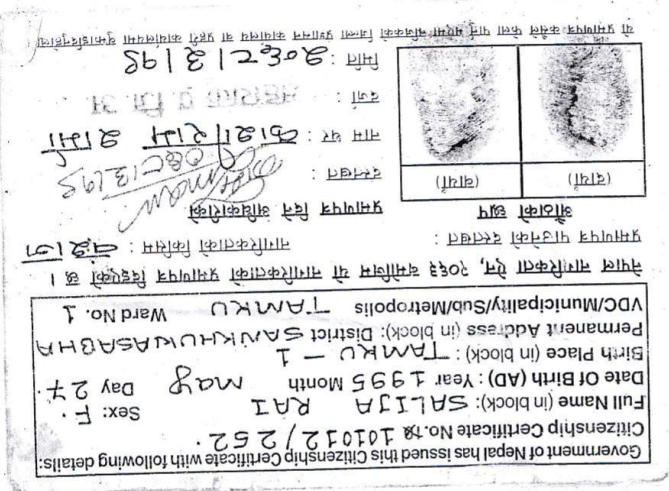 Government of Nepal has issued this Citizenship Certificate with following details:
Citizenship Certificate No. 101012/252.
Full Name (in block): SALIJA RAI Sex: F.
Date Of Birth (AD): Year 1995 Month May Day 27.
Birth Place (in block): TAMKU - 1
Permanent Address (in block): District SANKHUWASABHA
VDC/Municipality/Sub/Metropolis TAMKU Ward No. 1
नेपाल नागरिकता ऐन, २०६३ बमोजिम यो नागरिकताको प्रमाणपत्र दिइएको छ ।
प्रमाणपत्र पाउनेको दस्तखत : नागरिकताको किसिम : वंशज
औंठाको छाप
(दायाँ) (बायाँ)
प्रमाणपत्र दिने अधिकारीको
दस्तखत :
नाम थर : काशीराम शर्मा
दर्जा : सहायक प्र. जि. अ.
मिति : २०६८।३।१५
यो प्रमाणपत्र कसैले फेला पारे भएमा नजिकको जिल्ला प्रशासन कार्यालय वा प्रहरी कार्यालयमा बुझाइदिनुहोला